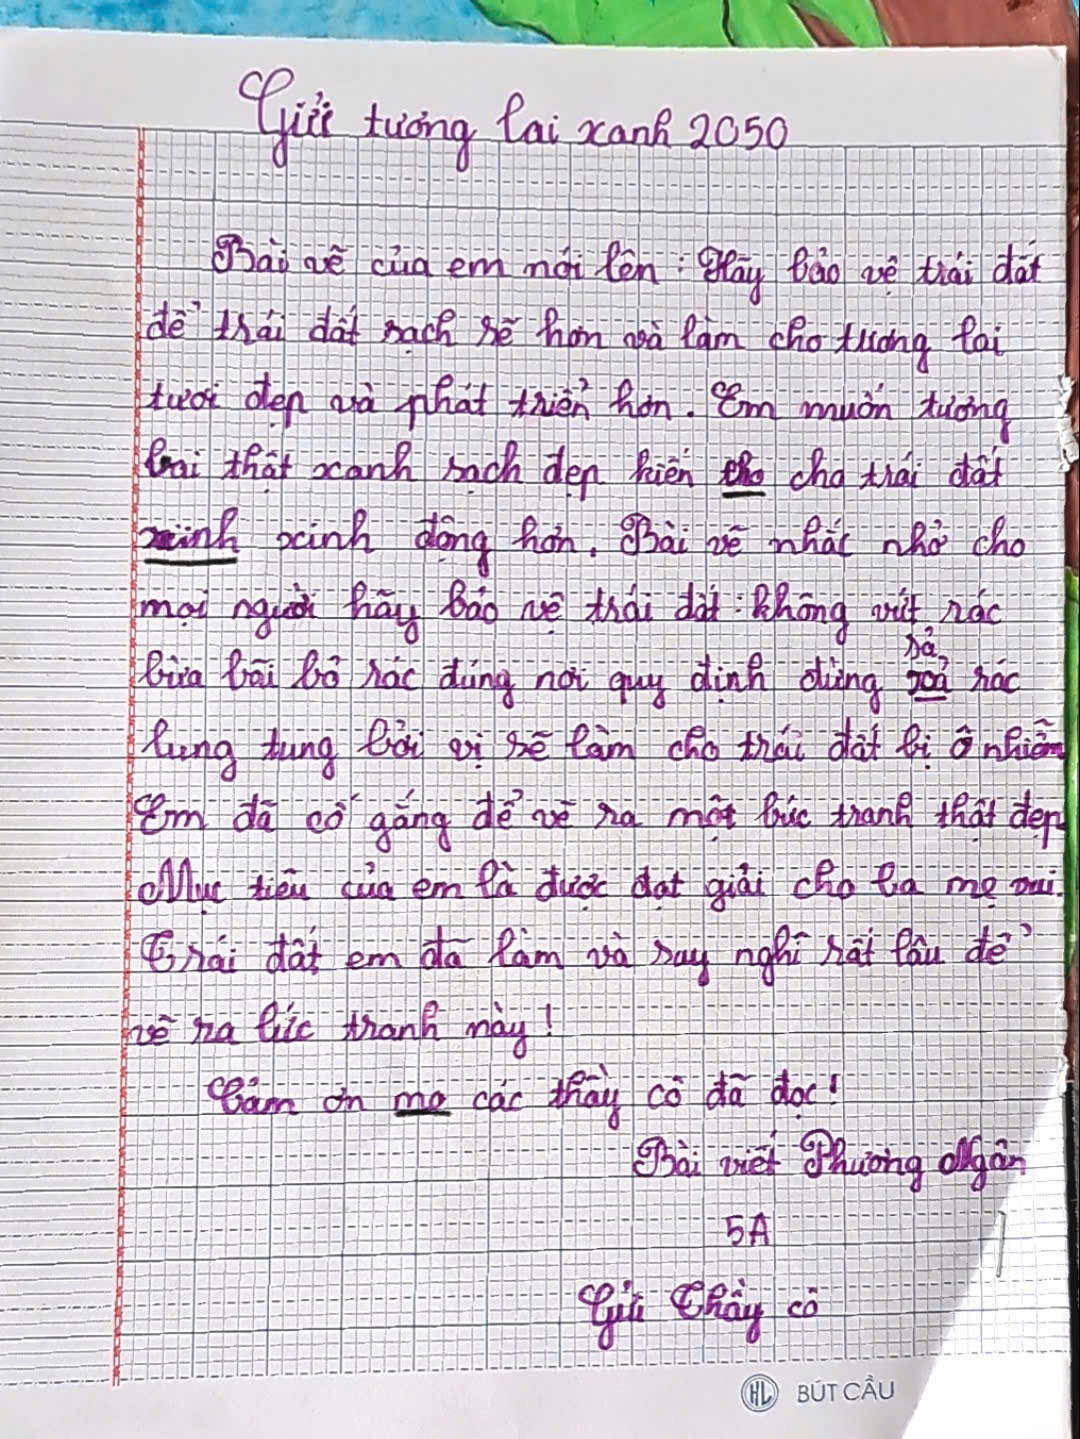 Gửi tương lai xanh 2050
Bài vẽ của em nói lên: Hãy bảo vệ trái đất
để trái đất sạch sẽ hơn và làm cho tương lai
tươi đẹp và phát triển hơn. Em muốn tương
lai thật xanh sạch đẹp kiến cho cho trái đất
xinh xinh động hơn. Bài vẽ nhắc nhở cho
mọi người hãy bảo vệ trái đất: không vứt rác
sả
bừa bãi bỏ rác đúng nơi quy định đừng xoả rác
lung tung bởi vì sẽ làm cho trái đất bị ô nhiễm
Em đã cố gắng để vẽ ra một bức tranh thật đẹp
Mục tiêu của em là được đạt giải cho ba mẹ vui.
Trái đất em đã làm và suy nghĩ rất lâu để
vẽ ra bức tranh này!
Cảm ơn mo các thầy cô đã đọc!
Bài viết Phương Ngân
5A
Gửi Thầy cô
HL BÚT CẦU